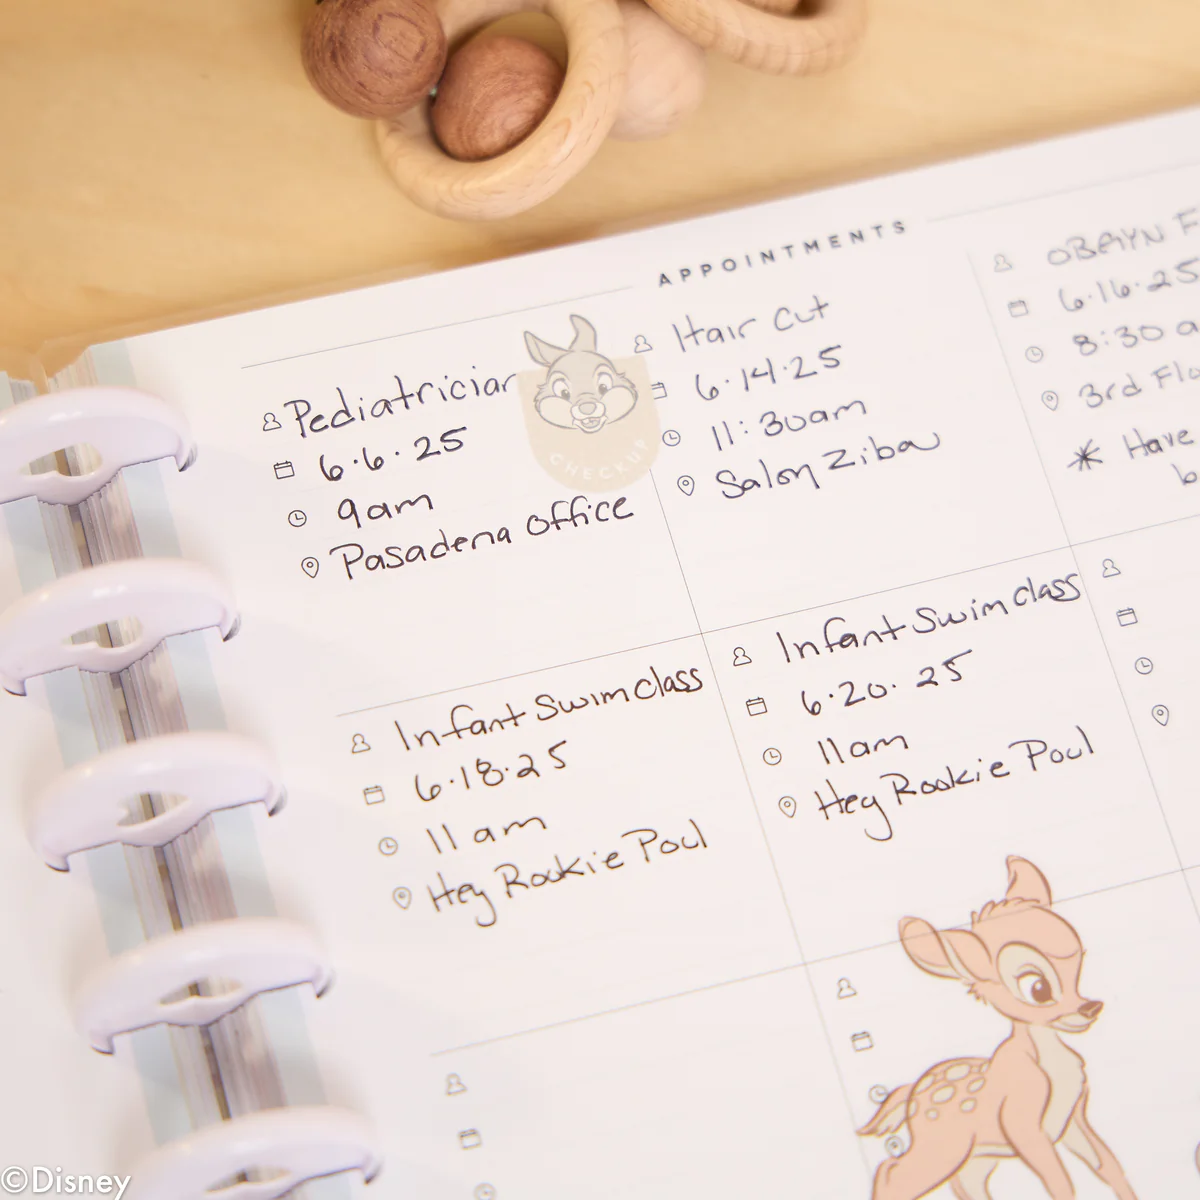 APPOINTMENTS
Pediatrician
6.6.25
9am
Pasadena Office
CHECKUP
Hair Cut
6.14.25
11:30am
Salon Ziba
OBGYN F
6.16.25
8:30 a
3rd Flo
* Have
b
Infant Swim Class
6.18.25
11am
Hey Rookie Pool
Infant Swim Class
6.20.25
11am
Hey Rookie Pool
©Disney